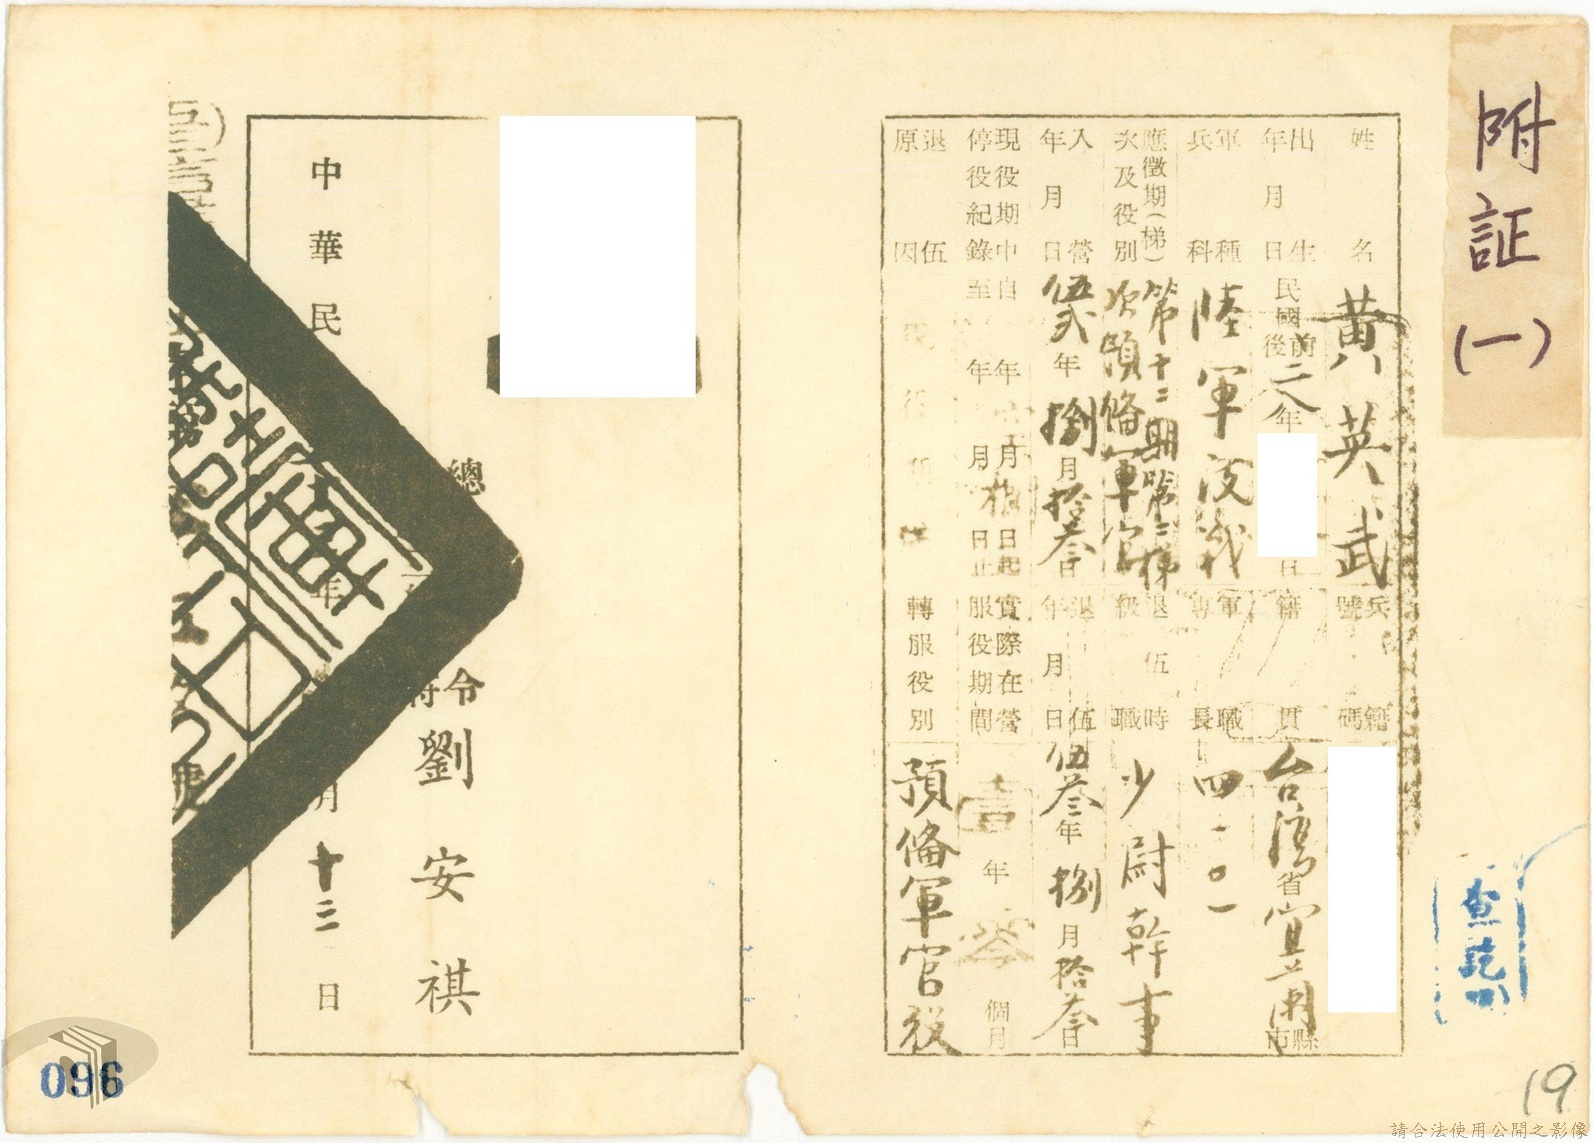 附証
(一)
姓名 黃英武
兵籍號碼
出生年月日 民國前後二八年 日
籍貫 台湾省宜蘭縣市
軍種兵科 陸軍政戰
軍職專長 四一0一
應徵期(梯)次及役別 第十二期第二梯次預備軍官
退伍時級職 少尉幹事
入營年月日 伍弍年捌月拾叁日
退伍年月日 伍叁年捌月拾叁日
現役期中停役紀錄 自 年 月 日起至 年 月 日止
實際在營服役期間 壹年零個月
退伍原因
轉服役別 預備軍官役
總 令 劉安祺
中華民 年 月十三日
查訖
096
19
請合法使用公開之影像